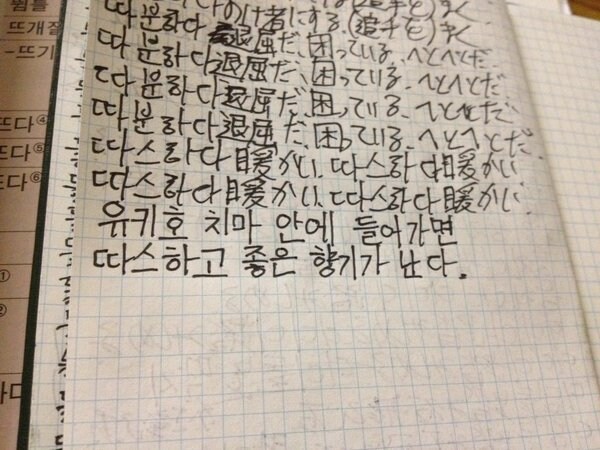 뜸들
뜨개질
-뜨기
뜨다④
뜨다⑤
뜨다⑥
①
다のけ者にする.(追手を)まく
따분하다 退屈だ、困っている.へとへとだ.
따분하다 退屈だ、困っている.へとへとだ
따분하다 退屈だ、困っている.へとへとだ
따분하다 退屈だ、困っている.へとへとだ.
따스하다 暖かい. 따스하다 暖かい.
따스하다 暖かい. 따스하다 暖かい.
유키호 치마 안에 들어가면
따스하고 좋은 향기가 난다.